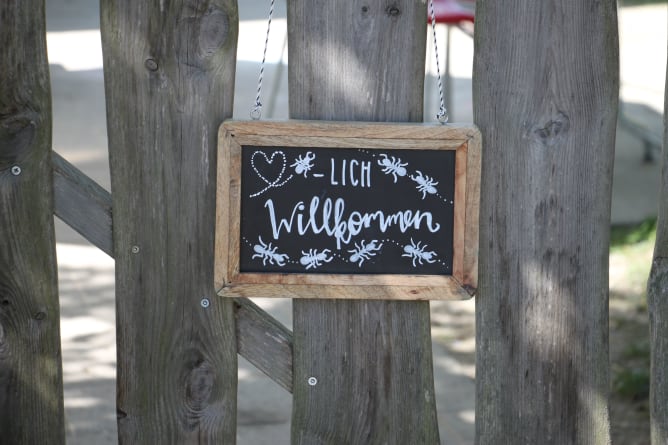 -LICH
Willkommen